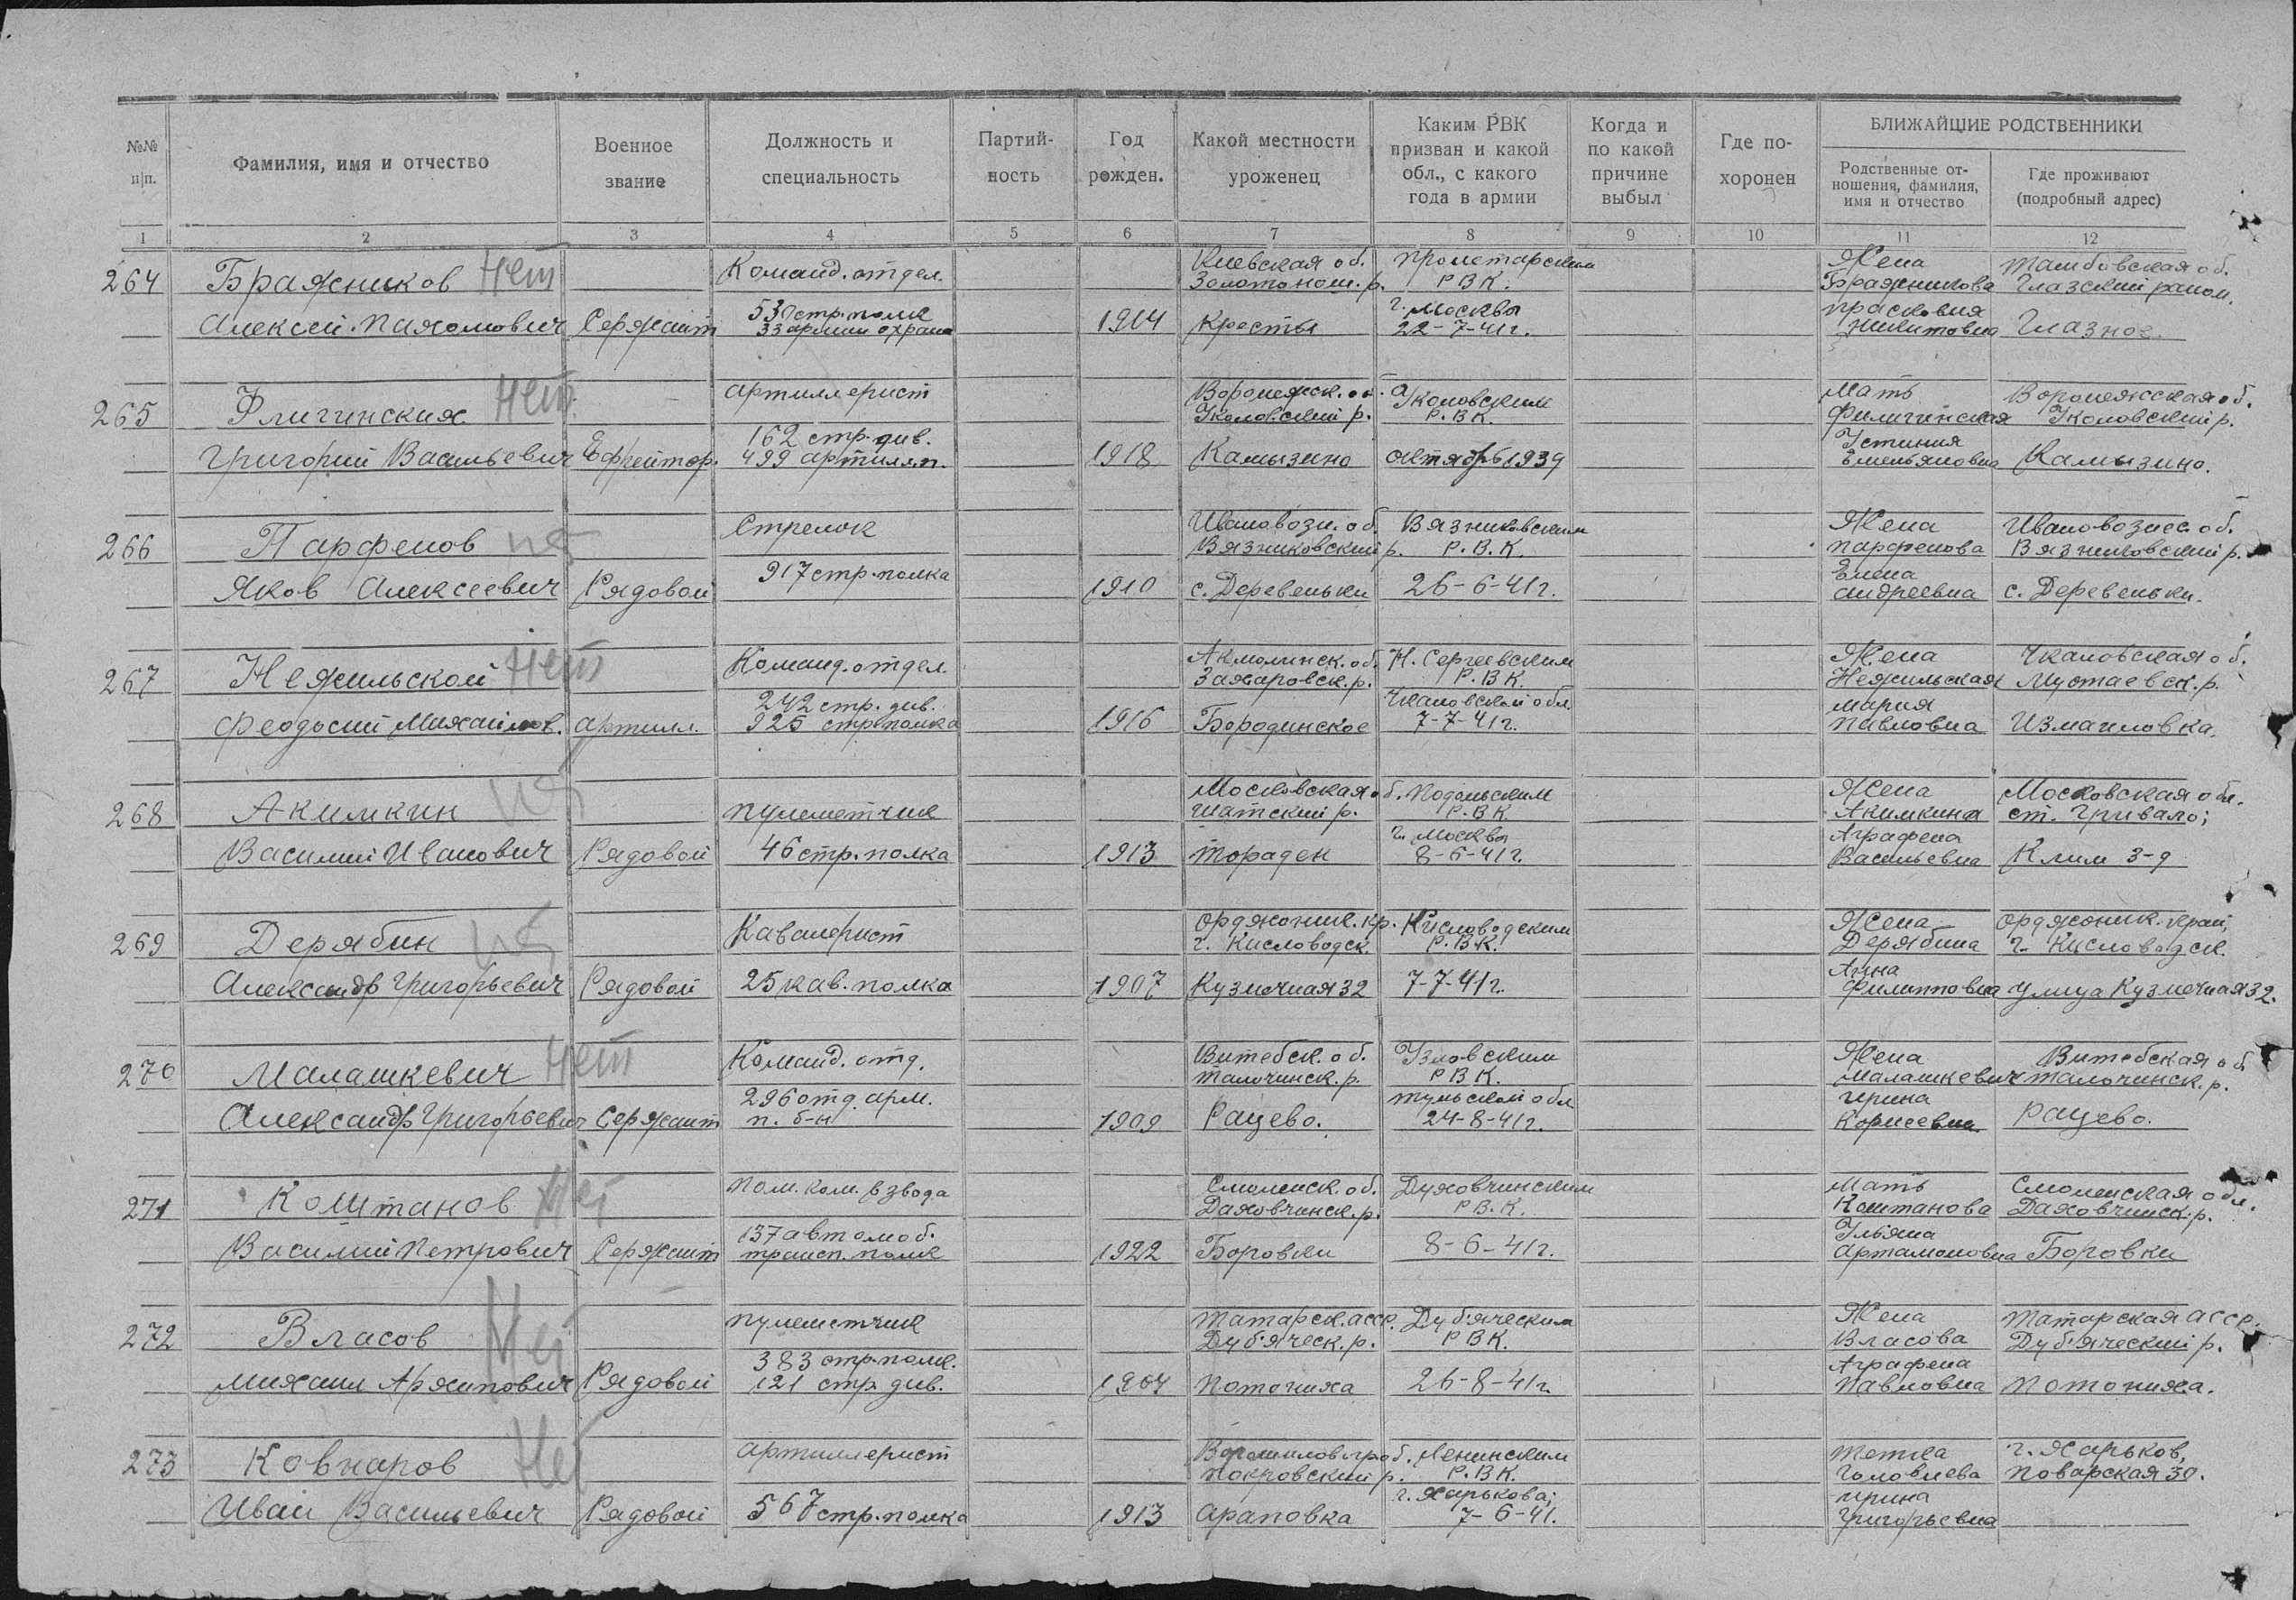 №№ п|п.
Фамилия, имя и отчество
Военное звание
Должность и специальность
Партий-ность
Год рожден.
Какой местности уроженец
Каким РВК призван и какой обл., с какого года в армии
Когда и по какой причине выбыл
Где по-хоронен
БЛИЖАЙШИЕ РОДСТВЕННИКИ
Родственные от-ношения, фамилия, имя и отчество
Где проживают (подробный адрес)
1 2 3 4 5 6 7 8 9 10 11 12
264 Бражников Нет Команд. отдел. Киевская об. Золотонош. р. Пролетарским Р.В.К. Жена Бражникова Тамбовская об. Глазский район.
Алексей Пахомович Сержант 530 стр. полк 33 армии охрана 1904 Кресты г. Москвы 22-7-41г. Прасковия Никитовна Глазное.
265 Фличинских Нет артиллерист Воронежск. об. Уколовский р. Уколовским Р.В.К. Мать Филичинская Воронежская об. Уколовский р.
Григорий Васильевич Ефрейтор. 162 стр. див. 499 артилл.п. 1918 Камызино октябрь 1939 Устиния Емельяновна Камызино.
266 Парфенов Стрелок Ивановозн. об. Вязниковский р. Вязниковским Р.В.К. Жена Парфенова Ивановознес. об. Вязниковский р.
Яков Алексеевич Рядовой 917 стр. полка 1910 с. Деревеньки 26-6-41г. Елена Андреевна с. Деревеньки.
267 Нежильской Нет Команд. отдел. Акмолинск. об. Захаровск. р. Н. Сергеевским Р.В.К. Жена Нежильская Чкаловская об. Мустаевск. р.
Феодосий Михайлов. артилл. 242 стр. див. 925 стр. полка 1916 Бородинское Чкаловской обл. 7-7-41г. Мария Павловна Измаиловка.
268 Акимкин пулеметчик Московская об. Шатский р. Подольским Р.В.К. Жена Акимкина Московская обл. ст. Гривало;
Василий Иванович Рядовой 46 стр. полка 1913 Торадек г. Москвы 8-6-41г. Аграфена Васильевна Клим 3-д
269 Дерябин Кавалерист Орджоник. кр. г. Кисловодск. Кисловодским Р.В.К. Жена Дерябина Орджоник. край, г. Кисловодск.
Александр Григорьевич Рядовой 25 кав. полка 1907 Кузнечная 32 7-7-41г. Анна Филипповна улица Кузнечная 32.
270 Малашкевич Нет Команд. отд. Витебск. об. Талочинск. р. Узловским РВК. Жена Малашкевич Витебская об. Талочинск. р.
Александр Григорьевич Сержант 296 отд. арт. п. б-н 1909 Рацево. Тульской обл 24-8-41г. Ирина Корнеевна Рацево.
271 Коштанов Нет Пом. ком. взвода Смоленск. об. Даховчинск. р. Духовчинским РВ.К. Мать Коштанова Смоленская обл. Даховчинск. р.
Василий Петрович Сержант 137 автомоб. трансп. полк 1922 Боровки 8-6-41г. Ульяна Артамоновна Боровки
272 Власов Нет Пулеметчик Татарск. асср. Дуб'яческ. р. Дуб'яческим РВК. Жена Власова Татарская асср. Дуб'яческий р.
Михаил Архипович Рядовой 383 стр. полк. 121 стр. див. 1904 Потониха 26-8-41г. Аграфена Павловна Потониха.
273 Ковнаров Нет артиллерист Ворошиловгр об. Покровский р. Ленинским Р.В.К. Тетка Головнева г. Харьков, Поварская 30.
Иван Васильевич Рядовой 567 стр. полка 1913 Араповка г. Харькова; 7-6-41. Ирина Григорьевна